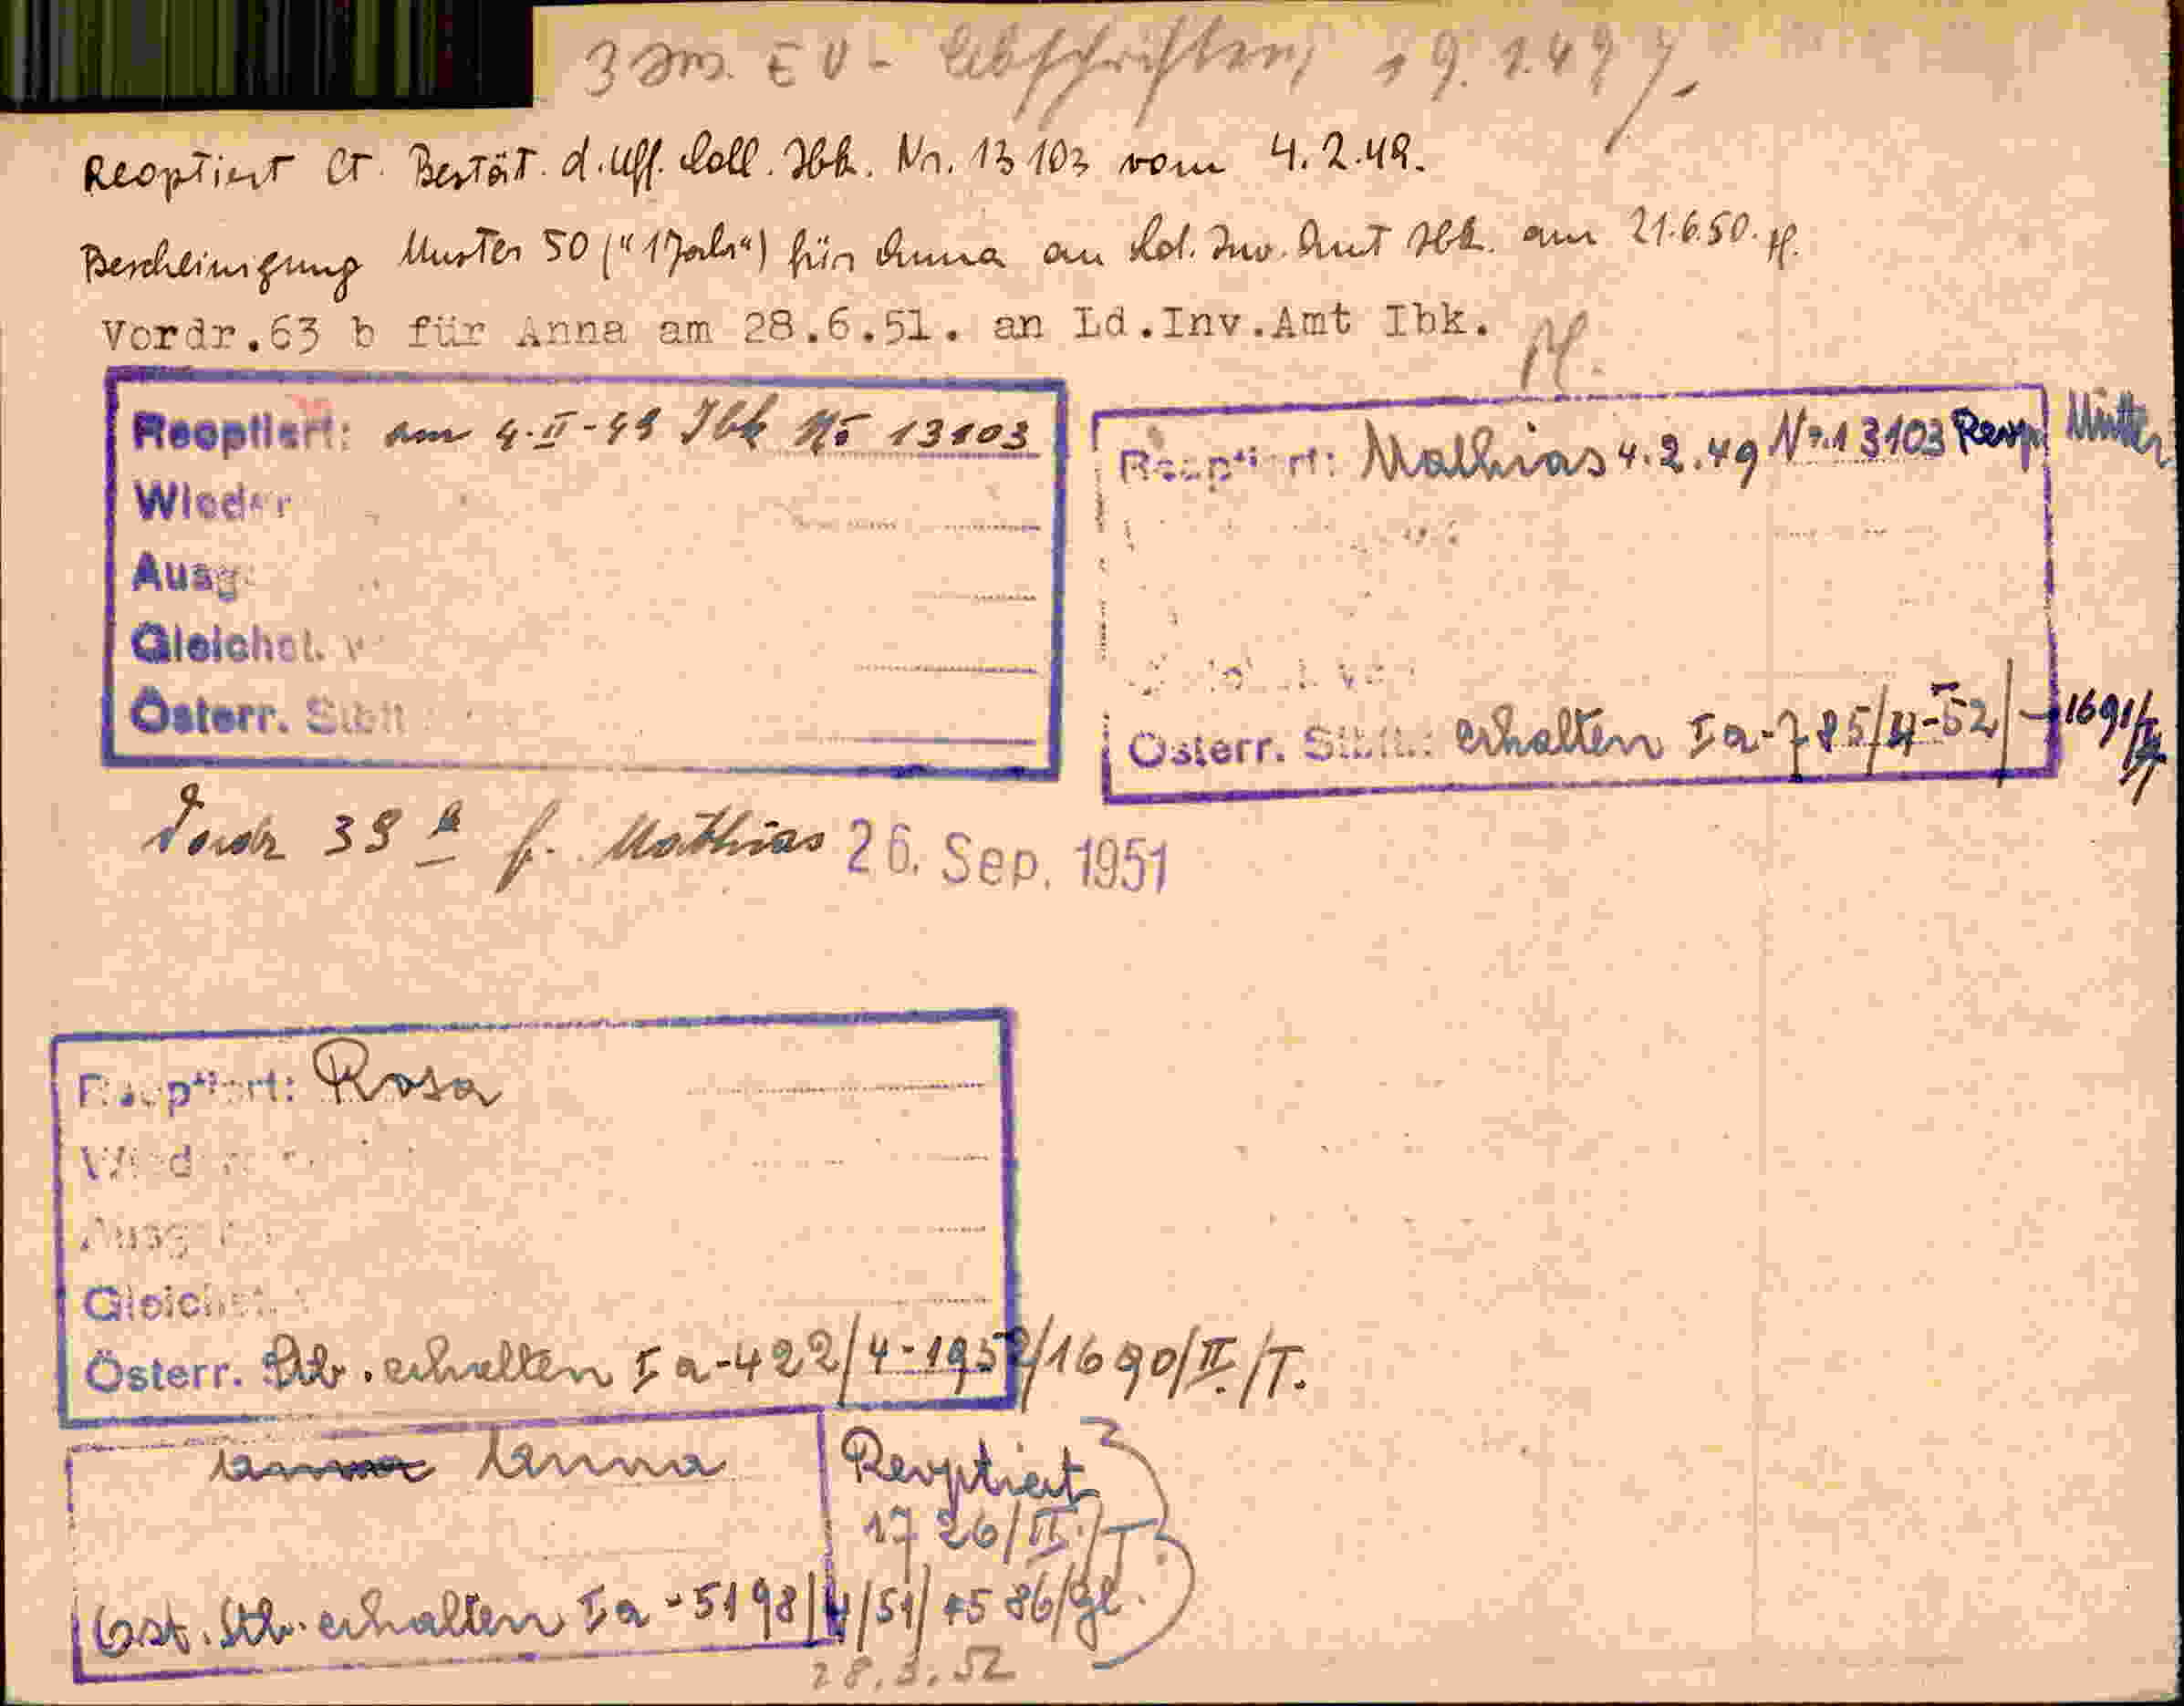 3 EV - Abschriften, 19.1.49
Reoptiert lt. Bestät. d. Uff. Coll. Ibk. Nr. 13103 vom 4.2.49.
Bescheinigung Muster 50 ("1 Jahr") für Anna an Ld. Inv. Amt Ibk. am 21.6.50.
Vordr.63 b für Anna am 28.6.51. an Ld.Inv.Amt Ibk.
Reoptiert: am 4.II-49 Ibk No 13103
Wieder
Ausg
Gleichst. v
Österr. Stbft
Reoptiert: Mathias 4.2.49 Nr. 13103 Reop. Mutter
Österr. Stbft.: erhalten Ia-785/4-52/-1691/
Vordr 39 a f. Mathias 26. Sep. 1951
Reoptiert: Rosa
Wied
Ausg
Gleichst.
Österr. Stb. erhalten Ia-422/4-1952/1690/II./T.
Anna Reoptiert
1726/II./T.
Öst. Stb. erhalten Ia-5198/4/51/ 1586/gl.
28.3.52